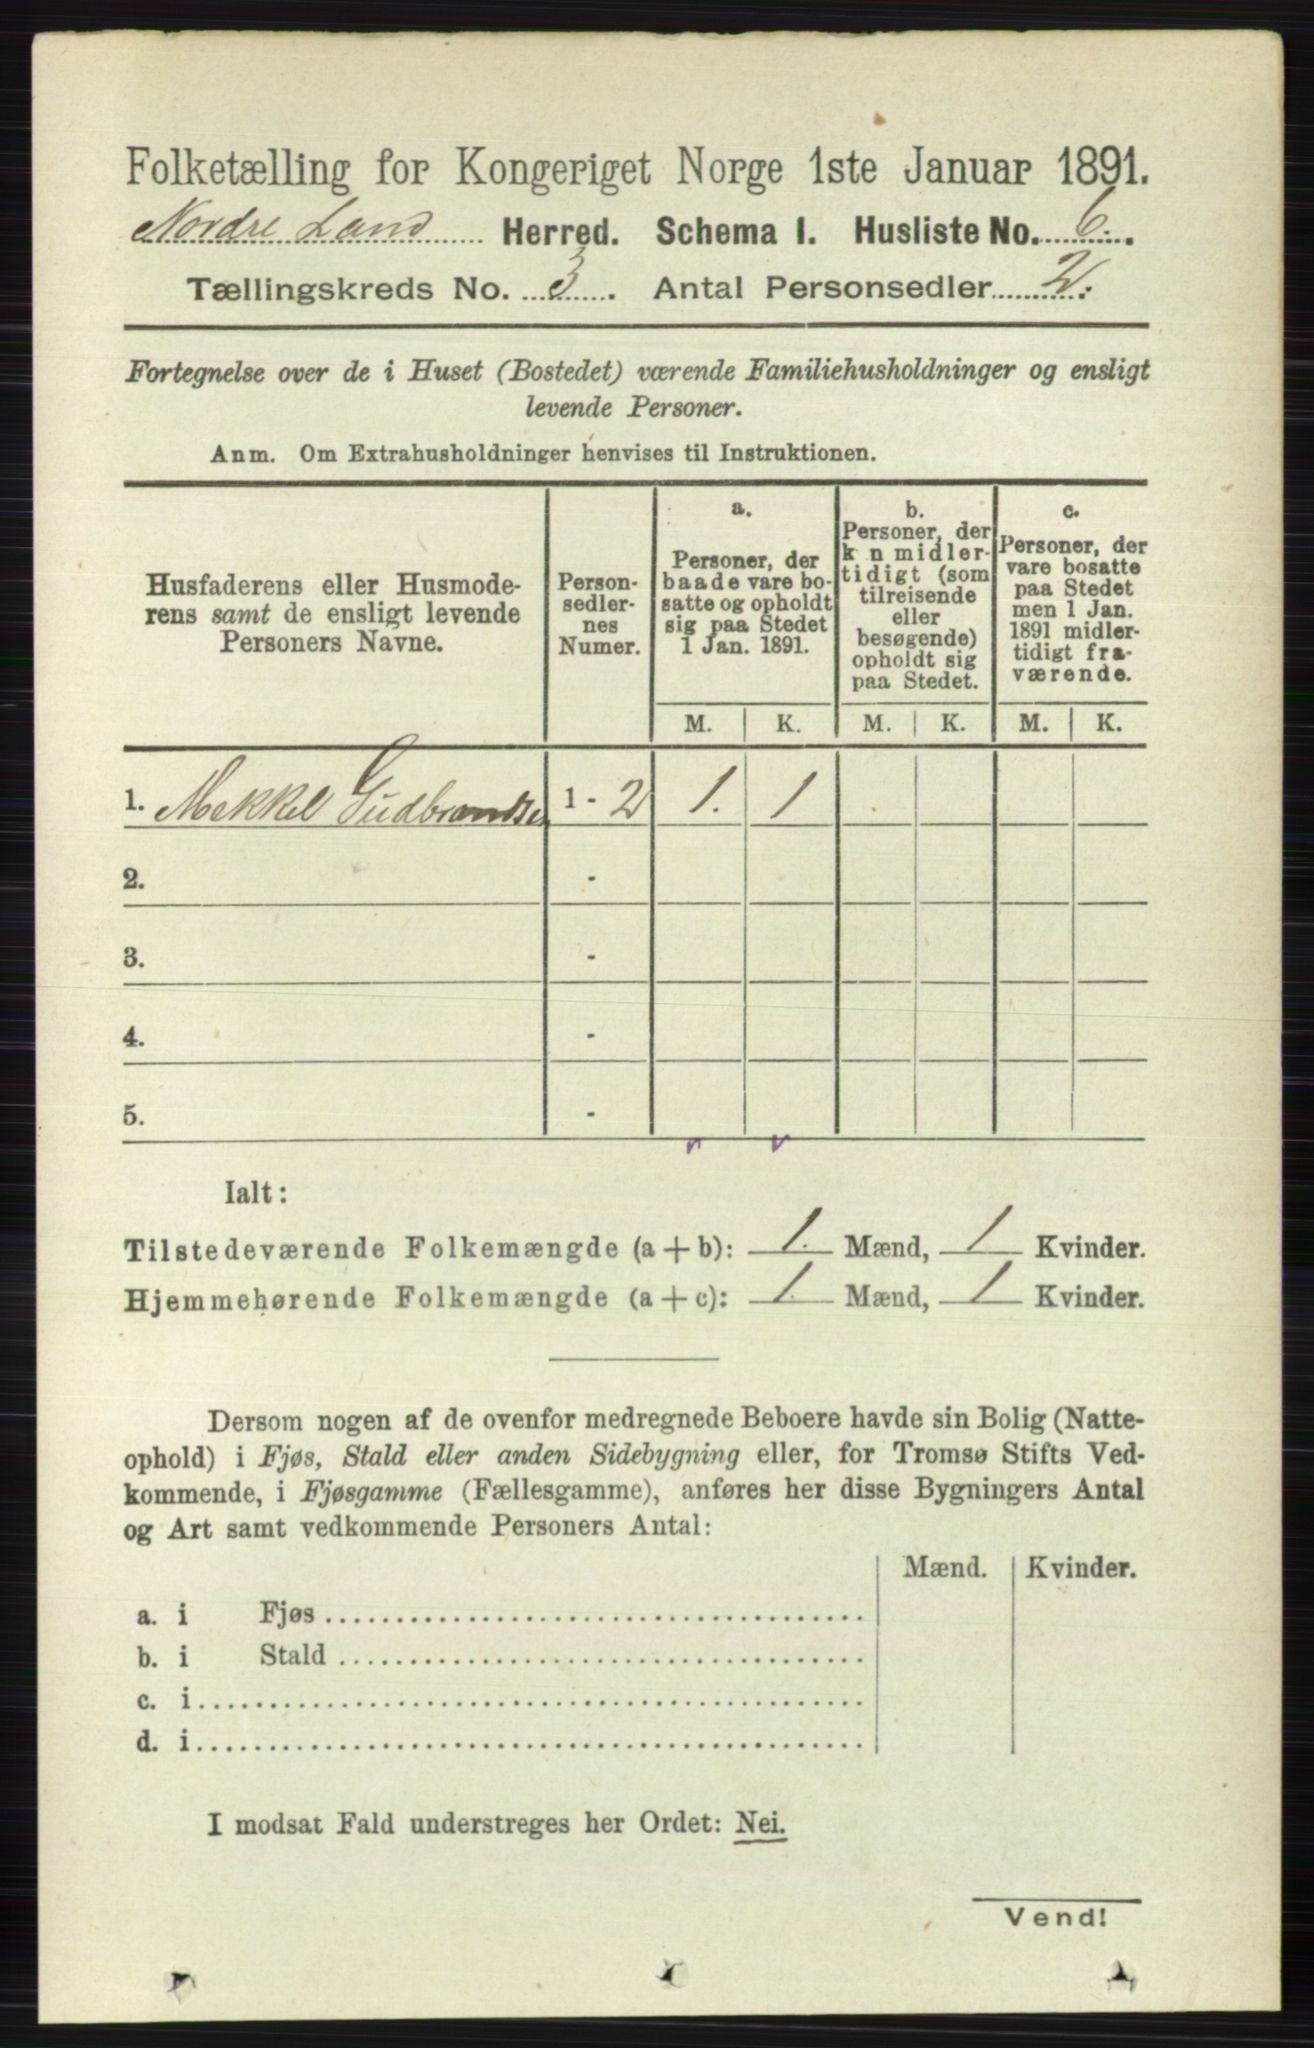 Folketælling for Kongeriget Norge 1ste Januar 1891.
Nordre Land Herred. Schema I. Husliste No. 6.
Tællingskreds No. 3. Antal Personsedler 2.
Fortegnelse over de i Huset (Bostedet) værende Familiehusholdninger og ensligt
levende Personer.
Anm. Om Extrahusholdninger henvises til Instruktionen.
Husfaderens eller Husmode-
rens samt de ensligt levende
Personers Navne.
Person-
sedler-
nes
Numer.
a.
Personer, der
baade vare bo-
satte og opholdt
sig paa Stedet
1 Jan. 1891.
b.
Personer, der
k n midler-
tidigt (som
tilreisende
eller
besøgende)
opholdt sig
paa Stedet.
c.
Personer, der
vare bosatte
paa Stedet
men 1 Jan.
1891 midler-
tidigt fra-
værende.
M. K. M. K. M. K.
1. Mekkel Gudbrandsen 1 - 2 1. 1
2. -
3. -
4. -
5. -
Ialt:
Tilstedeværende Folkemængde (a + b): 1. Mænd, 1 Kvinder.
Hjemmehørende Folkemængde (a + c): 1. Mænd, 1 Kvinder.
Dersom nogen af de ovenfor medregnede Beboere havde sin Bolig (Natte-
ophold) i Fjøs, Stald eller anden Sidebygning eller, for Tromsø Stifts Ved-
kommende, i Fjøsgamme (Fællesgamme), anføres her disse Bygningers Antal
og Art samt vedkommende Personers Antal:
Mænd. Kvinder.
a. i Fjøs
b. i Stald
c. i
d. i
I modsat Fald understreges her Ordet: Nei.
Vend!